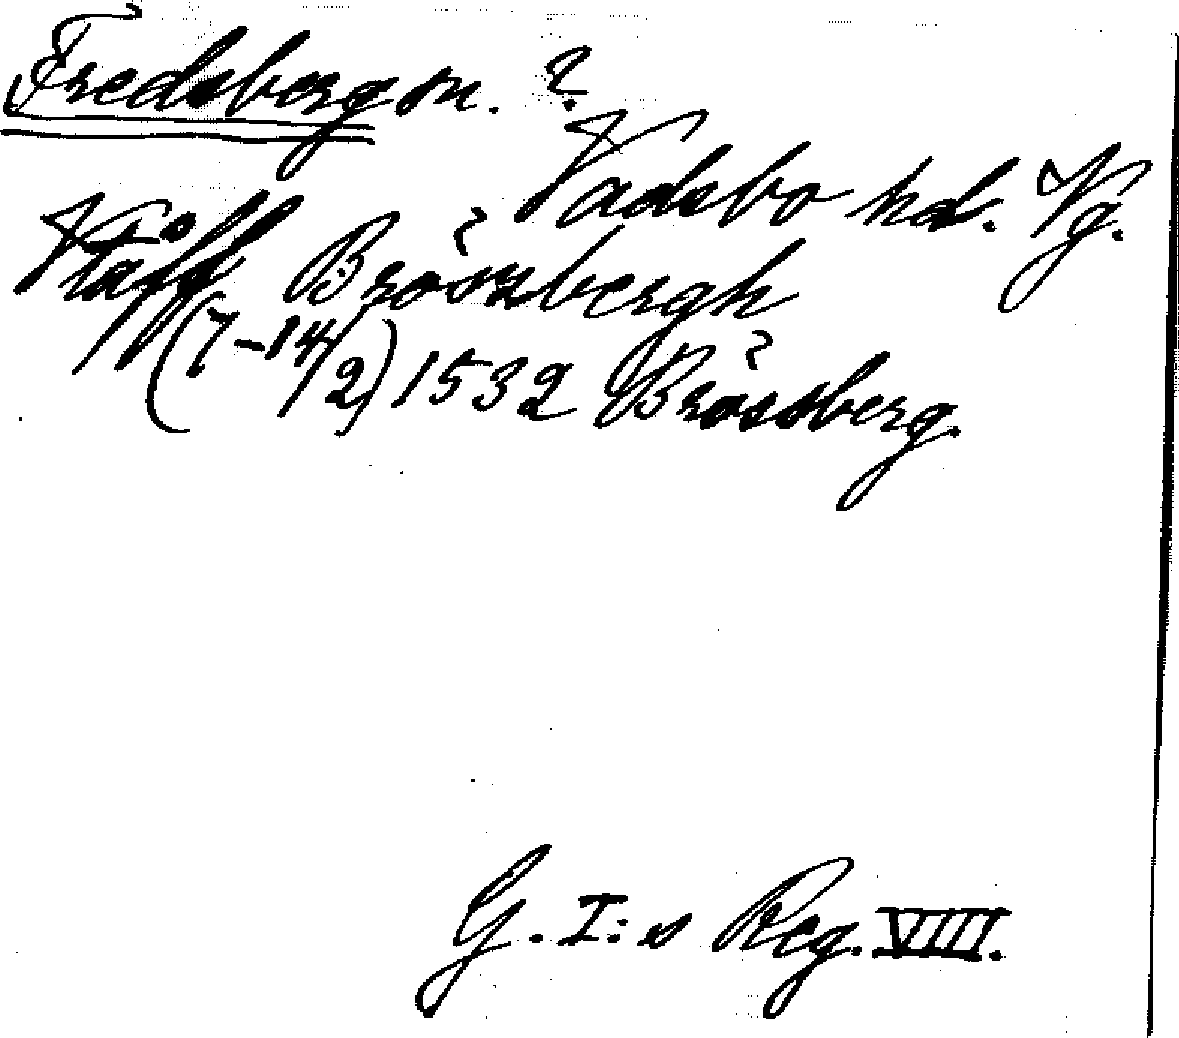 Fredsberg sn. ?
Vadsbo hd. Vg.
Ståff Bröszbergh
(7-14/2) 1532 Brössberg.
G. I:s Reg. VIII.